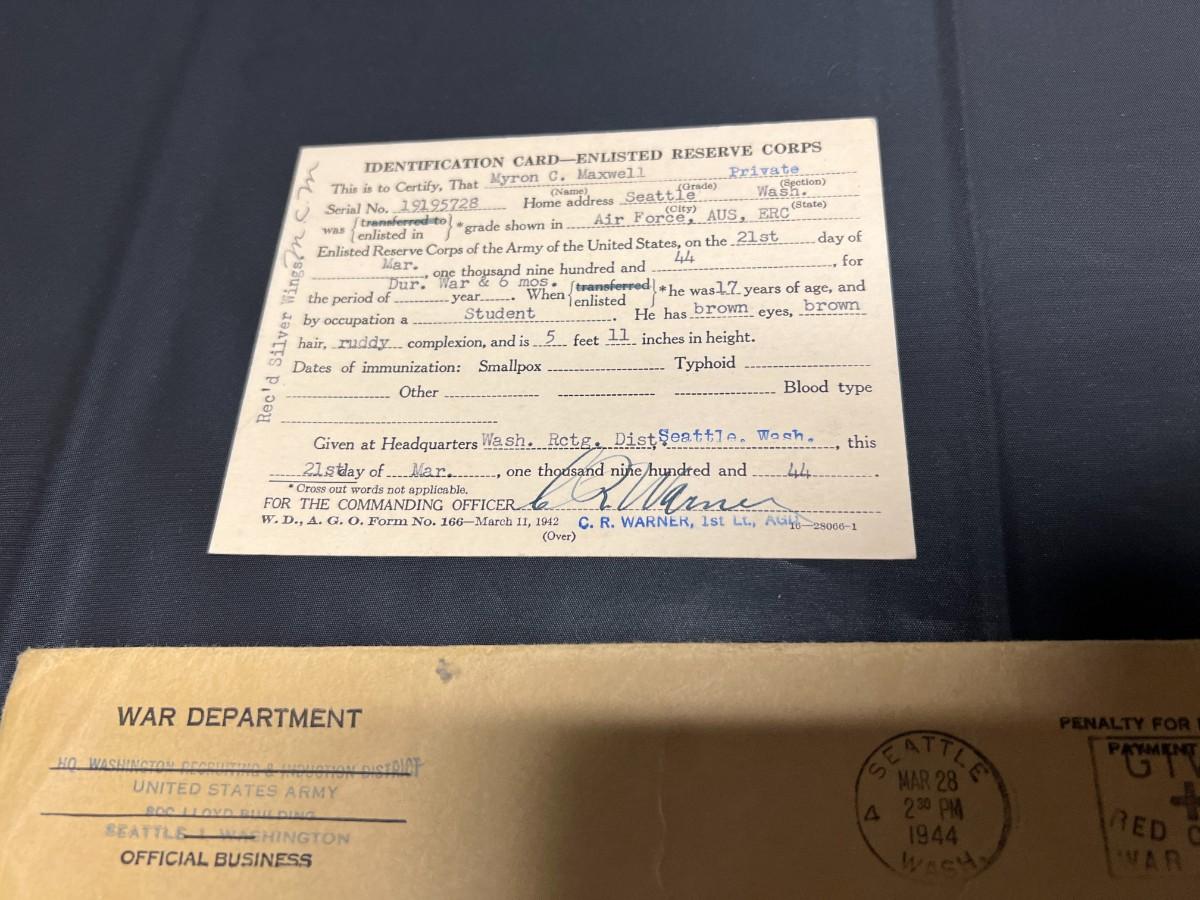 IDENTIFICATION CARD—ENLISTED RESERVE CORPS
This is to Certify, That Myron C. Maxwell Private
(Name) (Grade) (Section)
Serial No. 19195728 Home address Seattle Wash.
(City) (State)
was {transferred to enlisted in} *grade shown in Air Force, AUS, ERC
Enlisted Reserve Corps of the Army of the United States, on the 21st day of
Mar., one thousand nine hundred and 44, for
the period of Dur. War & 6 mos. year. When {transferred enlisted} *he was 17 years of age, and
by occupation a Student. He has brown eyes, brown
hair, ruddy complexion, and is 5 feet 11 inches in height.
Dates of immunization: Smallpox Typhoid
Other Blood type
Given at Headquarters Wash. Rctg. Dist. Seattle, Wash., this
21st day of Mar., one thousand nine hundred and 44.
*Cross out words not applicable.
FOR THE COMMANDING OFFICER C R Warner
W. D., A. G. O. Form No. 166—March 11, 1942 C. R. WARNER, 1st Lt., AGD 16—28066-1
(Over)
Rec'd Silver Wings M C. M
WAR DEPARTMENT
HQ. WASHINGTON RECRUITING & INDUCTION DISTRICT
UNITED STATES ARMY
LLOYD BUILDING
SEATTLE 1, WASHINGTON
OFFICIAL BUSINESS
SEATTLE
MAR 28
2 30 PM
1944
WASH.
4
PENALTY FOR
PAYMENT
RED
WAR